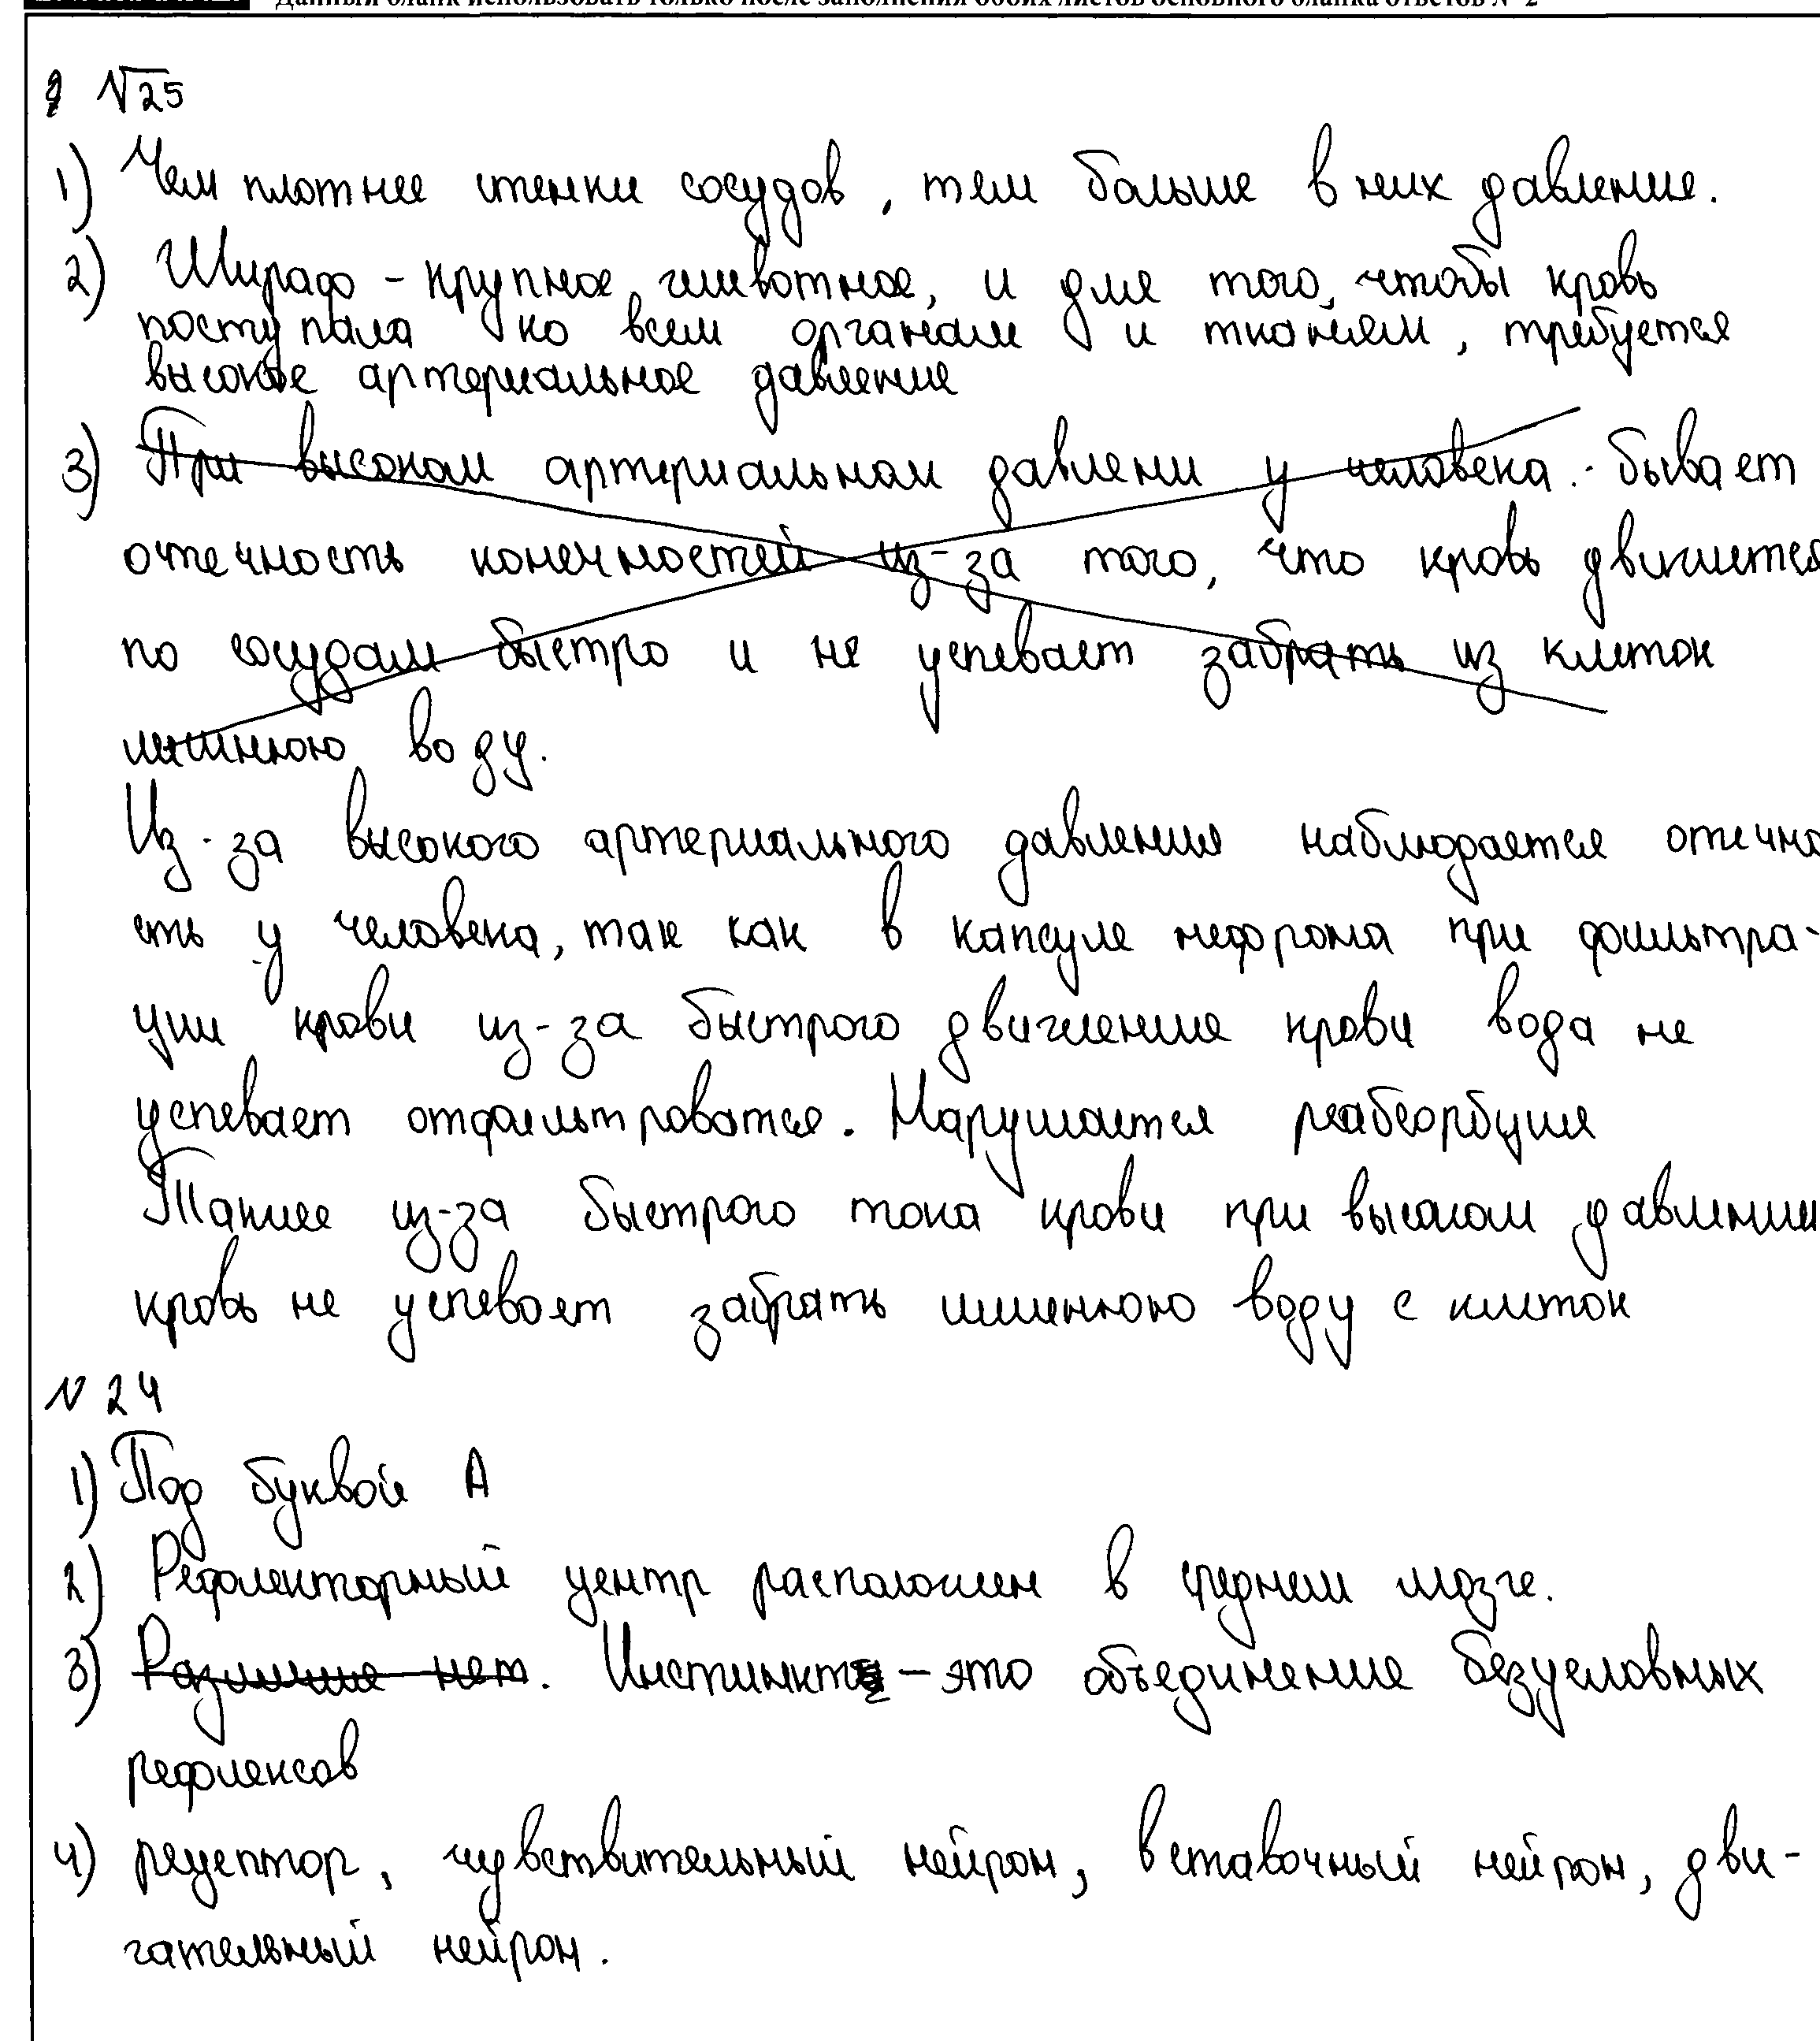 Данный бланк использовать только после заполнения обоих листов основного бланка ответов № 2
№25
1) Чем плотнее стенки сосудов, тем больше в них давление.
2) Жираф - крупное животное, и для того, чтобы кровь
поступала ко всем органам и тканям, требуется
высокое артериальное давление
3) При высоком артериальном давлени у человека. бывает
отечность конечностей из-за того, что кровь движется
по сосудам быстро и не успевает забрать из клеток
лишнюю воду.
Из-за высокого артериального давления наблюдается отечно
сть у человека, так как в капсуле нефрона при фильтра-
ции крови из-за быстрого движения крови вода не
успевает отфильтроватся. Нарушается реабсорбция
Также из-за быстрого тока крови при высоком давлении
кровь не успевает забрать лишнюю воду с клеток
N 24
1) Под буквой А
2) Рефлекторный центр расположен в среднем мозге.
3) Различие нет. Инстинкт - это объединение безусловных
рефлексов
4) рецептор, чувствительный нейрон, вставочный нейрон, дви-
гательный нейрон.